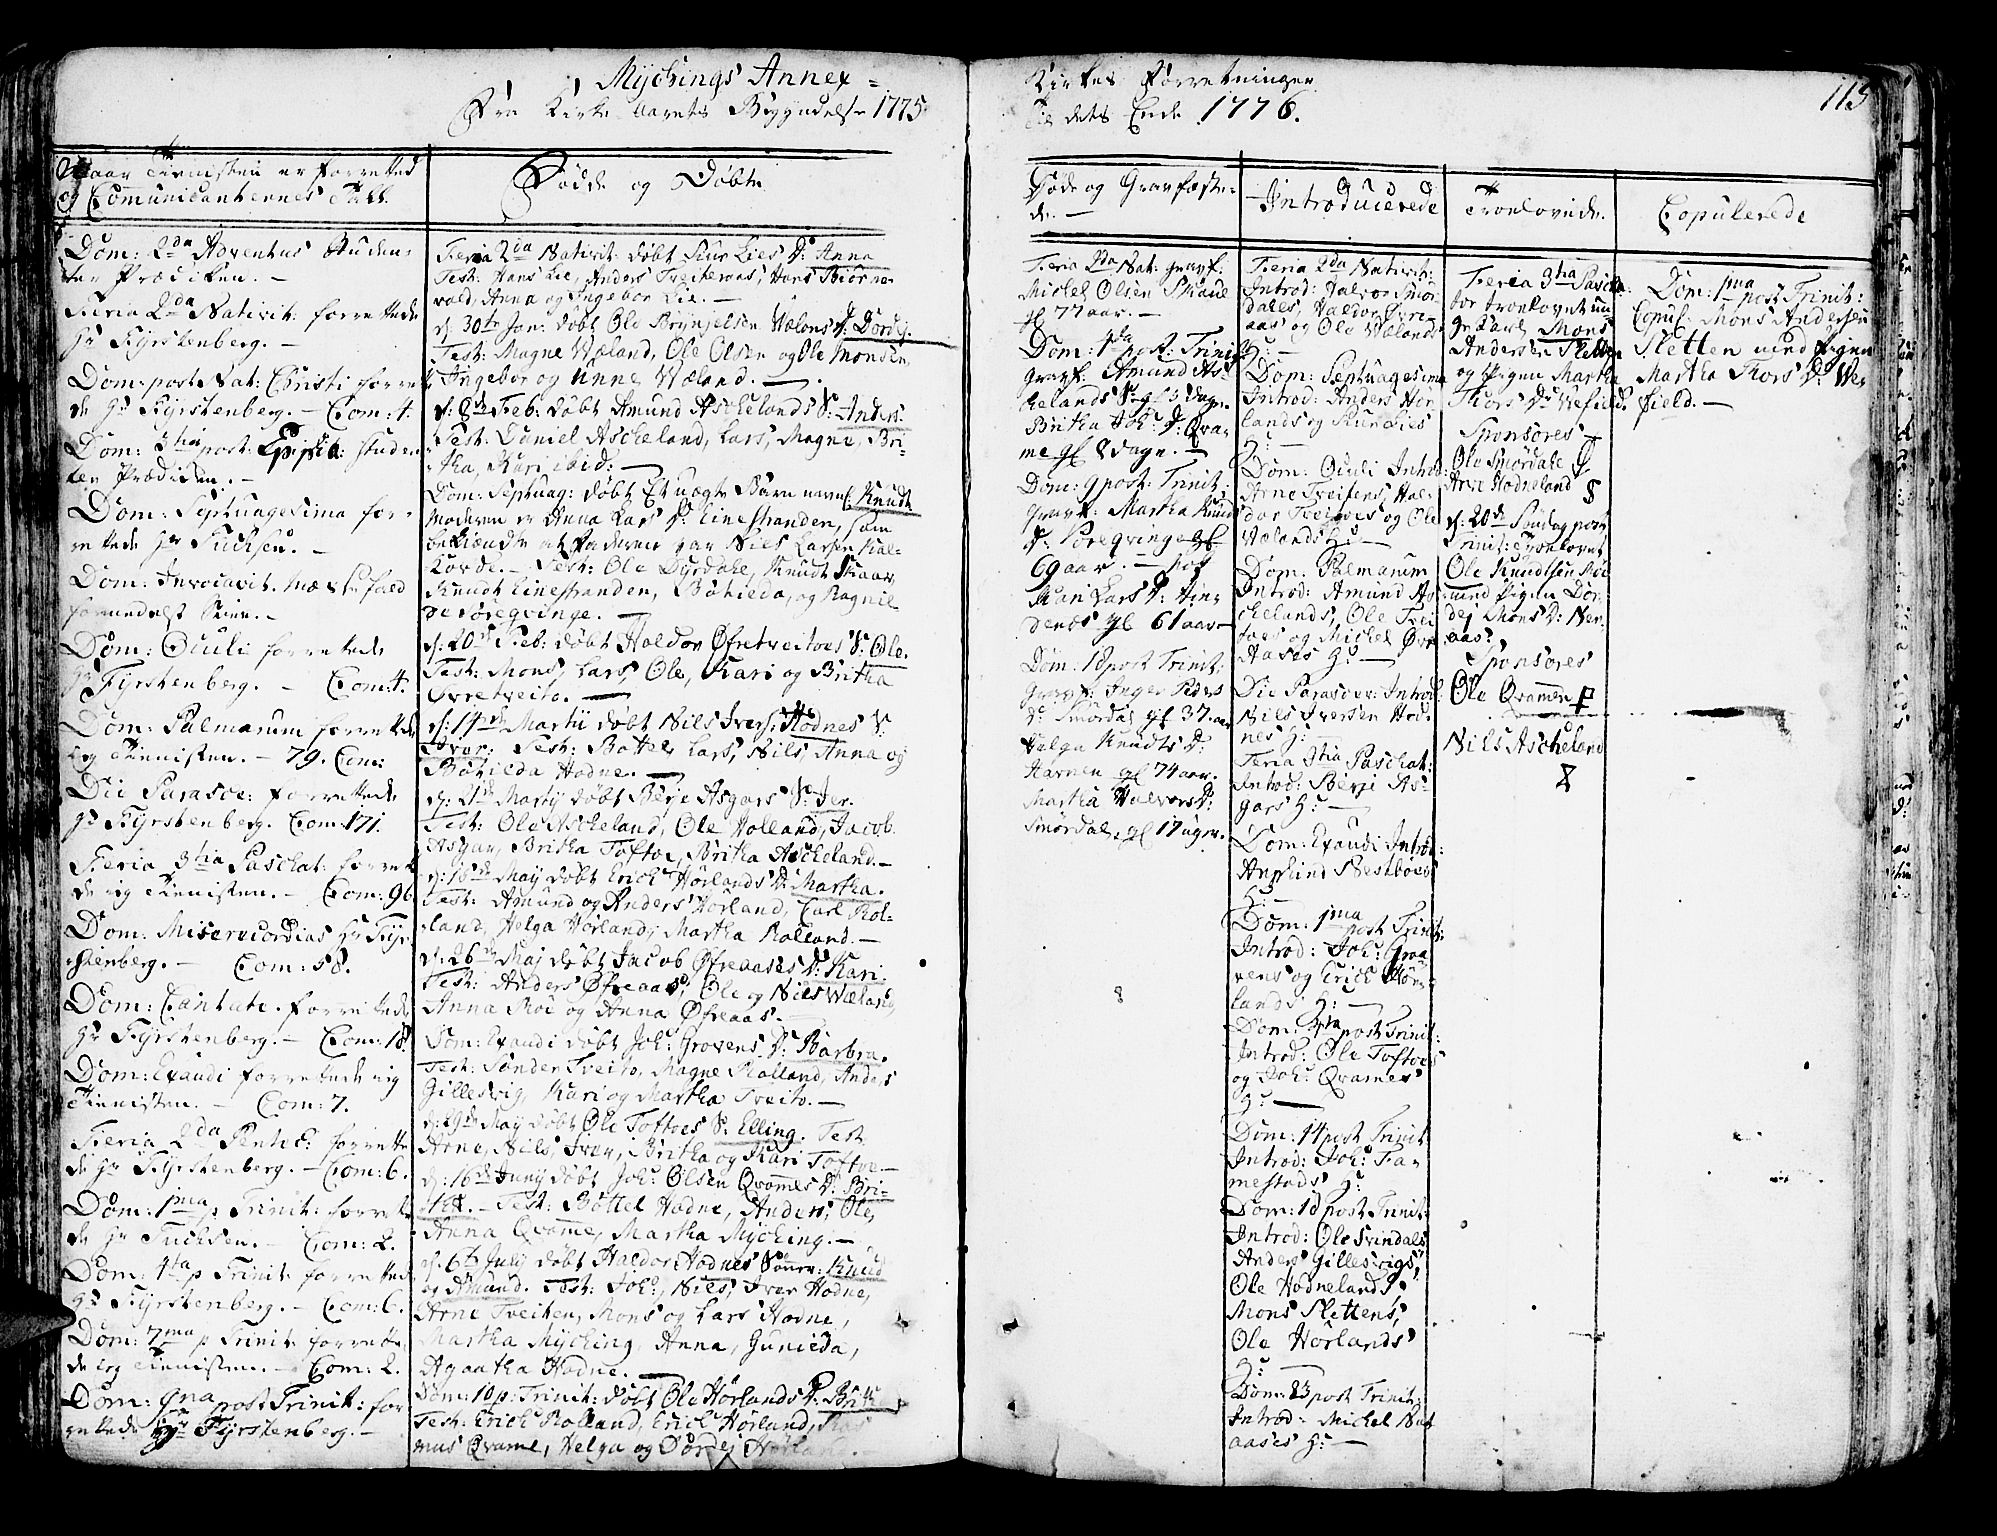 Mychings Annex =
Fra Kirke Aarets Begyndelse 1775
Naar Tienisten er forretted
og Comunicanternes Tall.
Fødde og Døbte
Dom: 2da Adventus Studen-
ter Prædiken. -
Feria 2da Nativit: forrettede
Hr Fyrstenberg. -
Dom: post Nat: Christi forret
de Hr Fyrstenberg. - Com: 4.
Dom: 3tia post Epiph: studen
ter Prædiken. -
Dom: Septuagesima for-
rettede Hr Fuchsen. -
Dom: Invocavit. Mæsse fald
formedelst
Dom: Oculi forrettede
Hr Fyrstenberg. - Com: 4.
Dom: Palmarum forrettede
ieg Tienisten. - 79. Com:
Die Parasce: forrettede
Hr Fyrstenberg. Com: 171.
Feria 3tia Paschat: forrett
de ieg Tienisten. - Com: 96
Dom: Misericordias Hr Fyr
stenberg. - Com: 58.
Dom: Cantate. forrettede
Hr Fyrstenberg. - Com: 18.
Dom: Exaudi forrettede ieg
Tienisten. - Com: 7.
Feria 2da Pentec: forrette
de Hr Fyrstenberg. - Com: 6.
Dom: 1ma p Trinit: forrett
de Hr Fuchsen. - Com: 2.
Dom: 4ta p Trinit: forretted
Hr Fyrstenberg. - Com: 6.
Dom: 7ma p Trinit: forrette
de ieg Tienisten. - Com: 2.
Dom: 9na post Trinit: for
rettede Hr Fyrstenberg. -
Feria 2da Nativit: døbt Siur Lies D: Anna
Test: Hans Lie, Anders Treiteraas, Hans Biørne-
vald, Anna og Ingebor Lie. -
d: 30te Jan: døbt Ole Brynjelsen Wælans D: Dordej.
Test: Magne Wæland, Ole Olsen og Ole Monsen,
Ingebor og Unne Wæland. -
d: 8de Feb: døbt Amund Aschelands S: Anders
Test: Daniel Ascheland, Lars, Magne, Bri-
tha, Kari ibid: -
Dom: Septuag: døbt Et uægte Barn navnl: Knudt
Moderen er Anna Lars D: Einestranden, som
bekiændte at Faderen var Nils Larsen Kal-
Test: Ole Dyrdale, Knudt Skaar,
Knudt Einestranden, Bøhilda, og Ragnil
de Soregvinge. -
d: 20de Feb: døbt Haldor Øfretveitoes S: Ole.
Test: Mons, Lars, Ole, Kari og Britha
Øvretveito. -
d: 14de Martii døbt Nils Ivers: Hodnes S:
Iver. Test: Bottel, Lars, Nils, Anna og
Bøhilda Hodne. -
d: 21de Martij døbt Berje Asgars S: Jer.
Test: Ole Ascheland, Ole Holland, Jacob
Asgar, Britha Toftoe, Britha Ascheland. -
d: 16de Maij døbt Erich Hørlands D: Martha.
Test: Amund og Anders Hørland, Carl Rol-
land, Helga Hørland, Martha Rolland. -
d: 26de Maj døbt Jacob Øfreaases D: Kari
Test: Anders Øfreaas, Ole og Niels Wæland,
Anna Roe og Anna Øfreaas. -
Dom: Exaudi døbt Joh: Grovens D: Barbra.
Test: Sønder Treito, Magne Rolland, Anders
Gillesvig, Kari og Martha Treito. -
d: 29de Maij døbt Ole Toftoes S: Elling. Test:
Arne, Nils, Iver, Britha og Kari Toftoe. -
d: 16de Junij døbt Joh: Olsen Qvames D: Bri-
tha. - Test: Bottel Hodne, Anders, Ole,
Anna Qvame, Martha Myching. -
d: 6te Julij døbt Haldor Hodnes Sønner: Knud
og Amund. Test: Joh:, Nils, Iver Hodne,
Arne Treiten, Mons og Lars Hodne,
Martha Myching, Anna, Gunilda,
Agaatha Hodne. -
Dom: 10 p: Trinit: døbt Ole Hørlands D: Brith:
Test: Erich Rolland, Erich Hørland, Ras
mus Qvame, Helga og Dordej Hørland.
Kirkes Forretninger
Til dets Ende 1776.
113
Døde og Gravfæste-
de. -
Introducerede
Trolovede.
Copulerede
Feria 2da Nat: gravf:
Michel Olsen Skaue
gl 77 aar. -
Dom: 4ta post: Trinit:
gravf: Amund As-
chelands S: gl 3 dage.
Britha Joh: D: Qva-
me gl 8 dage. -
Dom: 9 post: Trinit:
gravf: Martha Knuds
D: Soregvinge gl
69 aar. -
Kari Lars D: Hin-
denes gl 61 aar -
Dom: 18 post Trinit:
gravf: Inger Peders
D: Smørdal gl 37. aar
Helga Knudts D:
Harnen gl 74 aar.
Martha Halvors D:
Smørdal, gl 17 uger.
Feria 2da Nativit:
Introd: Halvor Smør-
dales, Haldor Øvre-
aas og Ole Wælands
H: -
Dom: Septuagesima
Introd: Anders Hør
lands og Siur Lies
H: -
Dom: Oculi Introd:
Arne Treitens, Hal-
dor Treitoes og Ole
Wælands H: -
Dom: Palmarum
Introd: Amund As-
chelands, Ole Trei
toes og Michel Øvre
Aases H: -
Die Parascev: Introd:
Nils Iversen Hod-
nes H: -
Feria 3tia Paschat:
Introd: Berje As-
gars H: -
Dom: Exaudi Introd:
Nestbøes
H: -
Dom: 1ma post Trinit:
Introd: Joh: Graa
vens og Erich Hør-
lands H: -
Dom: 4ta post Trinit:
Introd: Ole Toftoes
og Joh: Qvames
H: -
Dom: 14 post Trinit:
Introd: Joh: Fa-
mestads H:
Dom: 18 post Trinit:
Introd: Ole Svindals
Anders Gillesvigs,
Ole Hodnelands,
Mons Slettens,
Ole Hørlands
H: -
Dom: 23 post Trinit:
Introd: Michel
aases H: -
Feria 3tia Pascha:
for trolovet un
ge Karl Mons
Andersen Sletten
og Pigen Martha
Thors D: Vefield.
Sponsores
Ole Smørdale
Arne Hodneland
d: 20de Søndag post
Trinit: Trolovet
Ole Knudtsen Røe
med Pigen Dor-
dej Mons D: Ner-
aas.
Sponsores
Ole Qvamen
Nils Ascheland
Dom: 1ma post Trinit:
Copul: Mons Andersen
Sletten med Pigen
Martha Thors D: We-
field. -